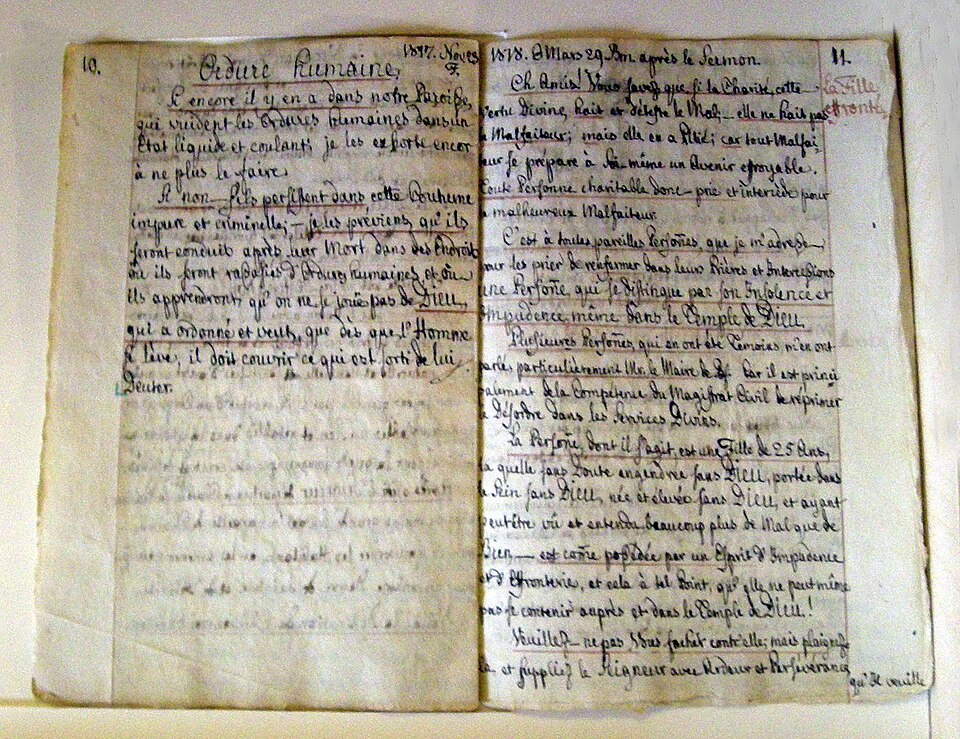 10.
1817. Nov. 23
F.
Ordure humaine,
& encore il y en a dans notre Paroisse,
qui vuident les Ordures humaines dans un
Etat liquide et coulant; je les exhorte encor
à ne plus le faire.
Si non — s'ils persistent dans cette Coutume
impure et criminelle; — je les préviens, qu'ils
seront conduits après leur Mort dans des Endroits
où ils seront rassasiés d'Ordures humaines et où
ils apprendront, qu'on ne se joue pas de DIEU,
qui a ordonné et veut, que dès que l'Homme
se lève, il doit couvrir ce qui est sorti de lui
Deuter.
1818. Mars 29. après le Sermon.
11.
La Fille
effrontée
Ch. Amis! Vous savez que si la Charité, cette
Vertu Divine, hait et déteste le Mal — elle ne hait pas
le Malfaiteur; mais elle en a Pitié; car tout Malfai-
teur se prépare à Soi même un Avenir effroyable.
Toute Personne charitable donc — prie et intercède pour
le malheureux Malfaiteur.
C'est à toutes pareilles Persoñes, que je m'adresse
pour les prier de renfermer dans leurs Prières et Intercessions
une Persoñe, qui se distingue par son Insolence et
Impudence même dans le Temple de DIEU.
Plusieures Persoñes, qui en ont été Témoins m'en ont
parlé, particulièrement Mr. le Maire de Car il est princi-
palement de la Competence du Magistrat Civil de réprimer
le Désordre dans les Services Divins.
La Persoñe, dont il s'agit, est une Fille de 25 Ans,
la quelle sans Doute engendrée sans DIEU, portée dans
le Sein sans DIEU, née et élevée sans DIEU, et ayant
peutêtre vû et entendu beaucoup plus de Mal que de
Bien — est com̃e possédée par un Esprit d'Impudence
et d'Effronterie, et cela à tel Point, qu'elle ne peut même
pas se contenir auprès et dans le Temple de DIEU!
Veuillez — ne pas Vous facher contr'elle; mais plaignez
la et suppliez le Seigneur avec Ardeur et Perseverance
qu'Il veuille